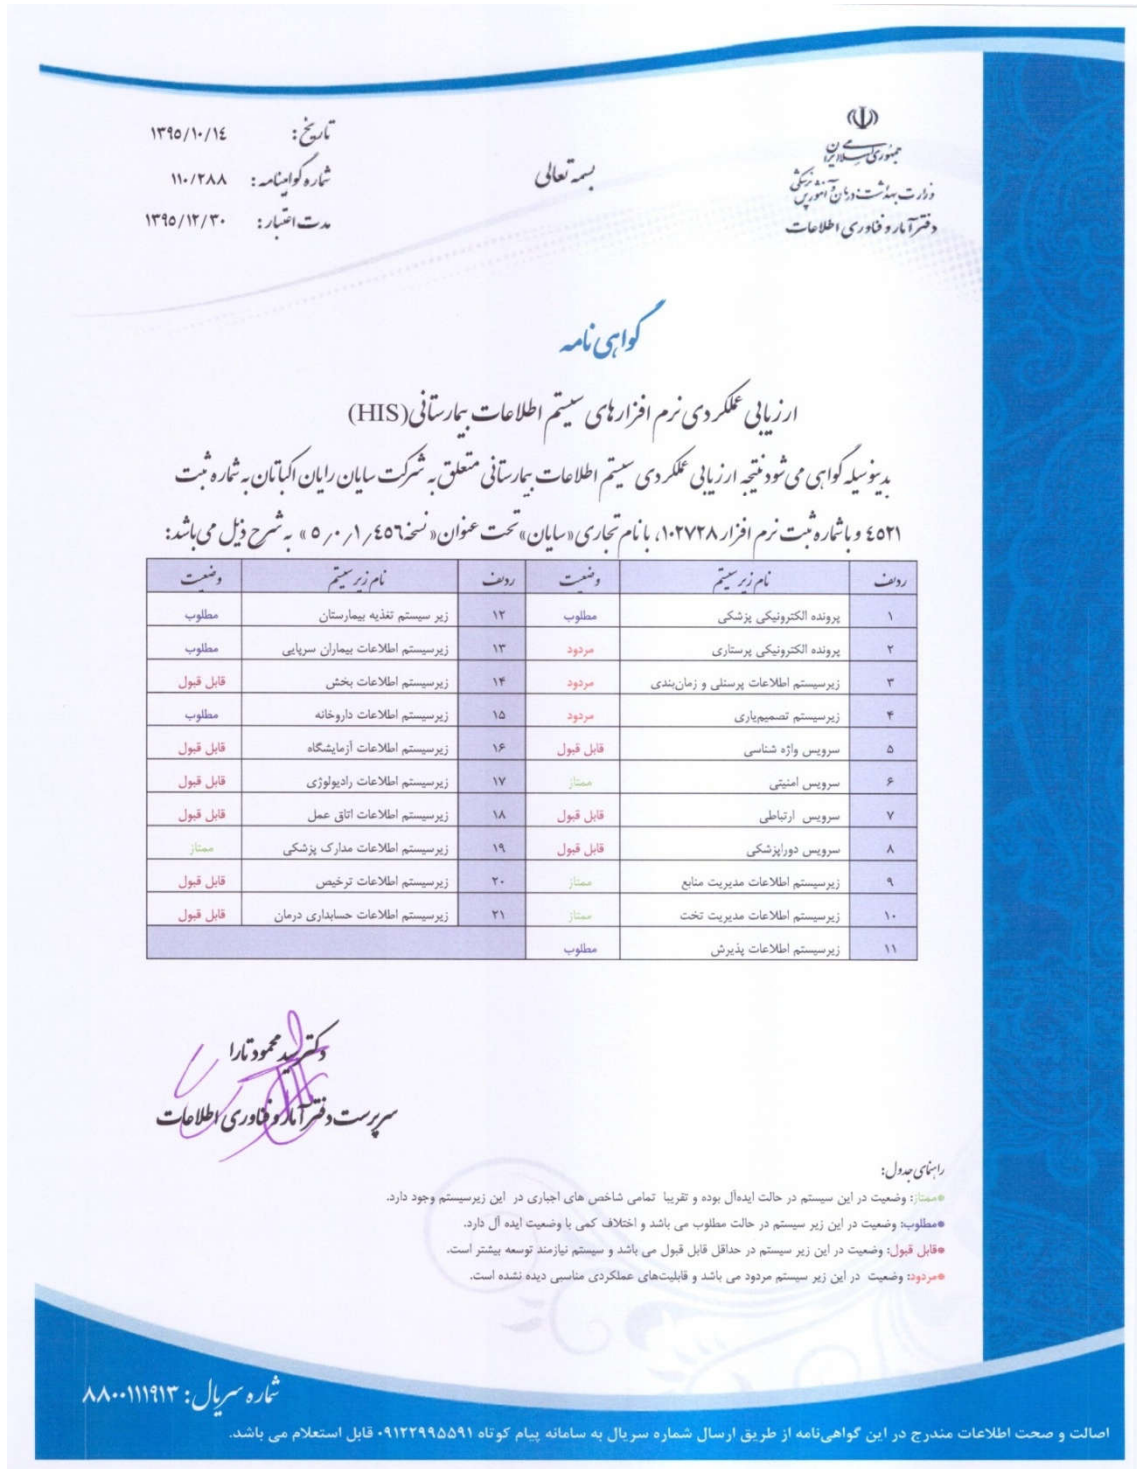 جمهوری اسلامی ایران
وزارت بهداشت، درمان و آموزش پزشکی
دفتر آمار و فناوری اطلاعات
بسمه تعالی
تاریخ: ۱۳۹۵/۱۰/۱٤
شماره گواهینامه: ۱۱۰/۲۸۸
مدت اعتبار: ۱۳۹۵/۱۲/۳۰
گواهی نامه
ارزیابی عملکردی نرم افزارهای سیستم اطلاعات بیمارستانی(HIS)
بدینوسیله گواهی می شود نتیجه ارزیابی عملکردی سیستم اطلاعات بیمارستانی متعلق به شرکت سایان رایان اکباتان به شماره ثبت
٤٥۲۱ و با شماره ثبت نرم افزار ۱۰۲۷۲۸، با نام تجاری «سایان» تحت عنوان « نسخه ٤٥٦٫۱٫۰٫٥ » به شرح ذیل می باشد:
ردیف نام زیر سیستم وضعیت ردیف نام زیر سیستم وضعیت
۱ پرونده الکترونیکی پزشکی مطلوب ۱۲ زیر سیستم تغذیه بیمارستان مطلوب
۲ پرونده الکترونیکی پرستاری مردود ۱۳ زیرسیستم اطلاعات بیماران سرپایی مطلوب
۳ زیرسیستم اطلاعات پرسنلی و زمان‌بندی مردود ۱۴ زیرسیستم اطلاعات بخش قابل قبول
۴ زیرسیستم تصمیم‌یاری مردود ۱۵ زیرسیستم اطلاعات داروخانه مطلوب
۵ سرویس واژه شناسی قابل قبول ۱۶ زیرسیستم اطلاعات آزمایشگاه قابل قبول
۶ سرویس امنیتی ممتاز ۱۷ زیرسیستم اطلاعات رادیولوژی قابل قبول
۷ سرویس ارتباطی قابل قبول ۱۸ زیرسیستم اطلاعات اتاق عمل قابل قبول
۸ سرویس دوراپزشکی قابل قبول ۱۹ زیرسیستم اطلاعات مدارک پزشکی ممتاز
۹ زیرسیستم اطلاعات مدیریت منابع ممتاز ۲۰ زیرسیستم اطلاعات ترخیص قابل قبول
۱۰ زیرسیستم اطلاعات مدیریت تخت ممتاز ۲۱ زیرسیستم اطلاعات حسابداری درمان قابل قبول
۱۱ زیرسیستم اطلاعات پذیرش مطلوب
دکتر سید محمود تارا
سرپرست دفتر آمار و فناوری اطلاعات
راهنمای جدول:
*ممتاز: وضعیت در این سیستم در حالت ایده‌آل بوده و تقریبا تمامی شاخص های اجباری در این زیرسیستم وجود دارد.
*مطلوب: وضعیت در این زیر سیستم در حالت مطلوب می باشد و اختلاف کمی با وضعیت ایده آل دارد.
*قابل قبول: وضعیت در این زیر سیستم در حداقل قابل قبول می باشد و سیستم نیازمند توسعه بیشتر است.
*مردود: وضعیت در این زیر سیستم مردود می باشد و قابلیت‌های عملکردی مناسبی دیده نشده است.
شماره سریال: ۸۸۰۰۱۱۱۹۱۳
اصالت و صحت اطلاعات مندرج در این گواهی‌نامه از طریق ارسال شماره سریال به سامانه پیام کوتاه ۰۹۱۲۲۹۹۵۵۹۱ قابل استعلام می باشد.